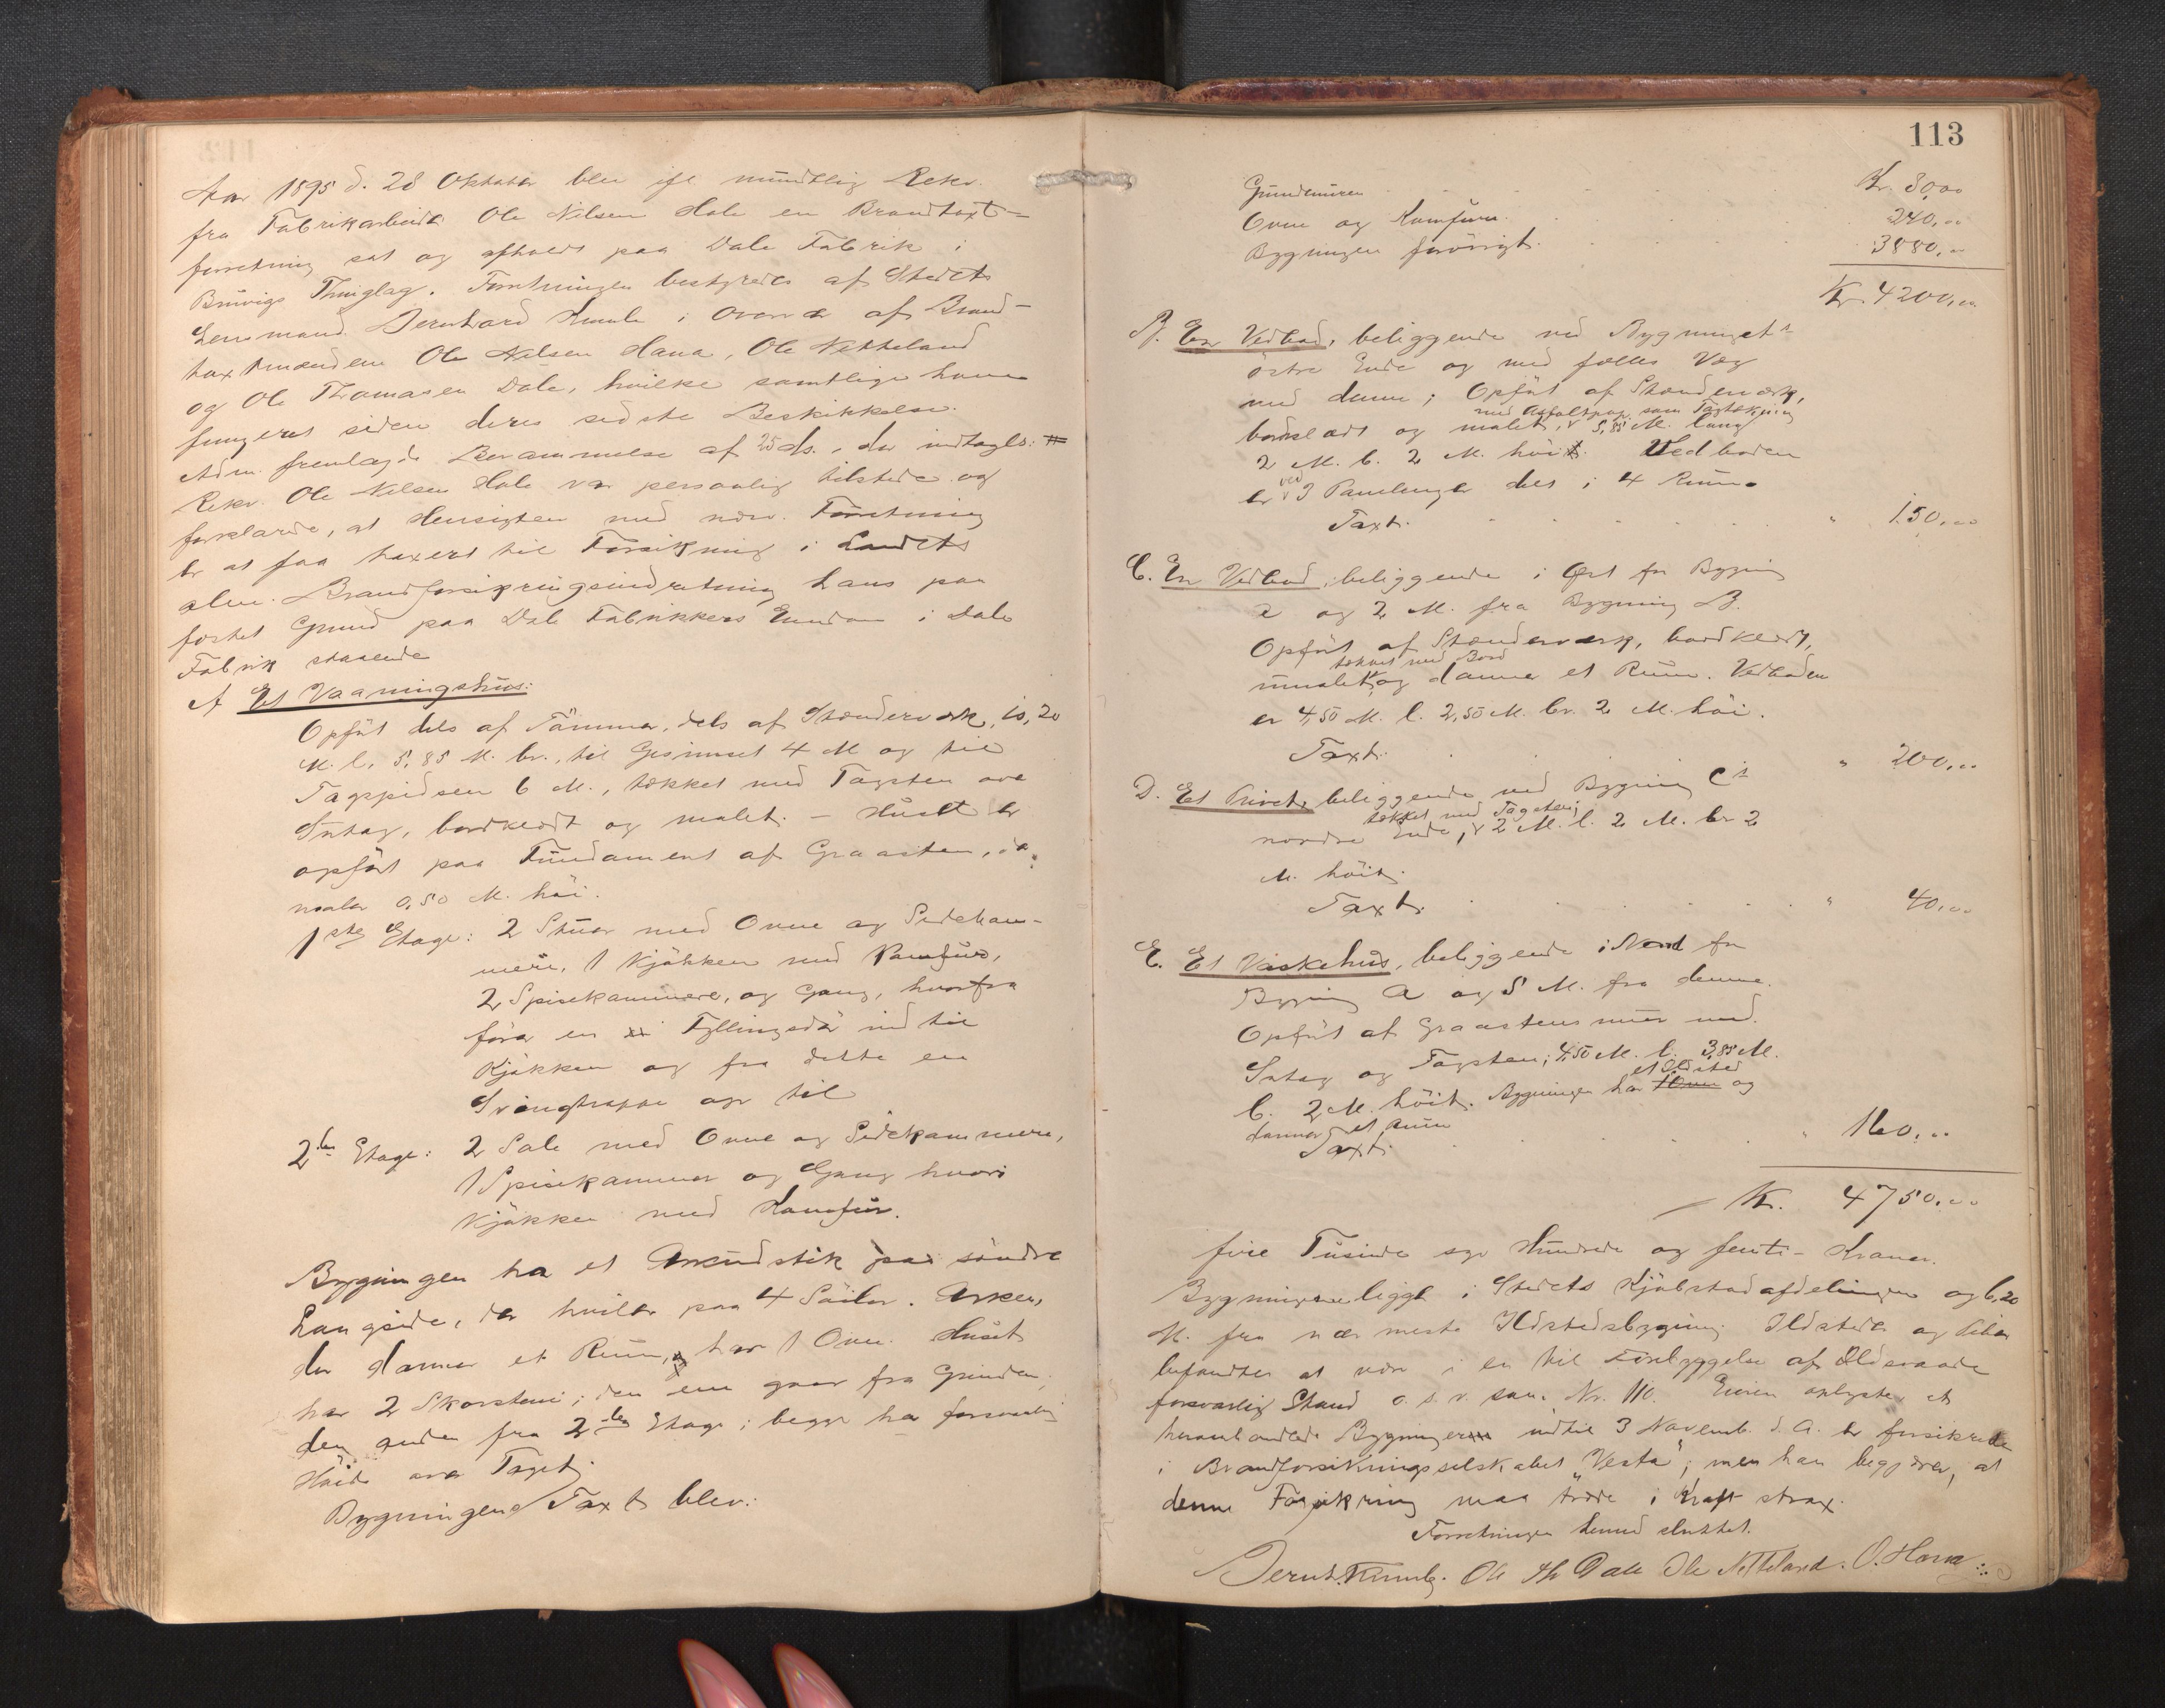 Aar 1895 d. 28 Oktober blev ifl mündtlig Rekv.
fra Fabrikarbeider Ole Nilsen Hole en Brandtaxt-
forretning sat og afholdt paa Dale Fabrik i
Brüvigs Thinglag. Forretningen bestyredes af Stedets
Lensmand Bernhard Kunle i Overvær af Brand-
taxtmændene Ole Nilsen Hana, Ole Netteland
og Ole Thomasen Dale, hvilke samtlige have
fungeret siden deres sidste Beskikkelse.
Adm. fremlagde Berammelse af 25 ds., der indtages: #
Rekv. Ole Nilsen Hole var personlig tilstede og
forklarede, at Hensigten med nærv. Forretning
er at faa taxeret til Forsikring i Landets
alm. Brandforsikringsindretning hans paa
fæstet Grund paa Dale Fabrikkers Eiendom i Dale
Fabrik staaende
A Et Vaaningshüs:
Opfört dels af Tömmer, dels af Stænderværk, 10,20
M. l. 5,85 M. br., til Gesimset 4 M og til
Tagspidsen 6 M., tækket med Tagsten over
Sutag, bordklædt og malet. – Hüset er
opfört paa Fündament af Graasten,
maler 0,50 M. höi.
1ste Etage: 2 Stüer med Ovne og Sidekam-
mere, 1 Kjökken med Komfür,
2 Spisekammere, og Gang, hvorfra
förer en Fyllingsdör ind til
Kjökken og fra dette en
Svingtrappe op til
2den Etage: 2 Sale med Ovne og Sidekammere,
1 Spisekammer og Gang hvori
Kjökken med Komfür.
Bygningen har et Arkeüdstik paa söndre
Langside, der hviler paa 4 Söiler. Arken,
der danner et Rüm, og har 1 Ovn. Hüset
har 2 Skorstene; den ene gaar fra Grunden,
den anden fra 2den Etage; begge har forsvarlig
Höide over Taget.
Bygningens Taxt blev:
113
Gründmüren Kr. 80,00
Ovne og Komfürer 240,00
Bygningen forövrigt 3880,00
Kr. 4200,00
B. En Vedbod, beliggende ved Bygning et's
östre Ende og med fælles Væg
med denne; Opfört af Stænderværk,
med Asfaltpap som Tagtækning
bordklædt og malet, 5,85 M. lang
2 M. b. 2 M. höi. Vedboden
ved
er 3 Panelinger delt i 4 Rüm.
Taxt. " 150,00
C. En Vedbod, beliggende i Öst for Bygning
a og 2 M. fra Bygning B.
Opfört af Stænderværk, bordklædt,
tækket med Bord
ümalet og danner et Rüm. Vedboden
er 4,50 M. l. 2,50 M. br. 2 M. höi.
Taxt. " 200,00
D. Et Privet, beliggende ved Bygning C's
tækket med Tagsten;
nordre Ende, 2 M. l. 2 M. br 2
M. höit.
Taxt. " 40,00
E. Et Vaskehüs, beliggende i Nord for
Bygning A og 5 M. fra denne.
Opfört af Graastensmür med
Sutag og Tagsten; 4,50 M. l. 3,85 M.
et Ildsted
b. 2 M. höit. Bygningen har 1 Ovn og
danner et Rüm
Taxt. " 160,00
Kr. 4750,00
fire Tüsinde syv Hündrede og femti – Kroner.
Bygningerne ligger i Stedets Kjöbstadafdelingen og 6,20
M. fra nærmeste Ildstedsbygning. Ildsteder og Piber
befandtes at være i en til Forebyggelse af Ildsvaade
forsvarlig Stand o.s.v. som Nr. 110. Eieren oplyste, at
heromhandlede Bygninger indtil 3 Novemb. d. A. er forsikrede
i Brandforsikringsselskabet "Vesta", men han begjærer, at
denne Forsikring maa træde i Kraft strax.
Forretningen hermed slüttet.
Bernh. Kunle. Ole Th Dale Ole Netteland. O. Hana